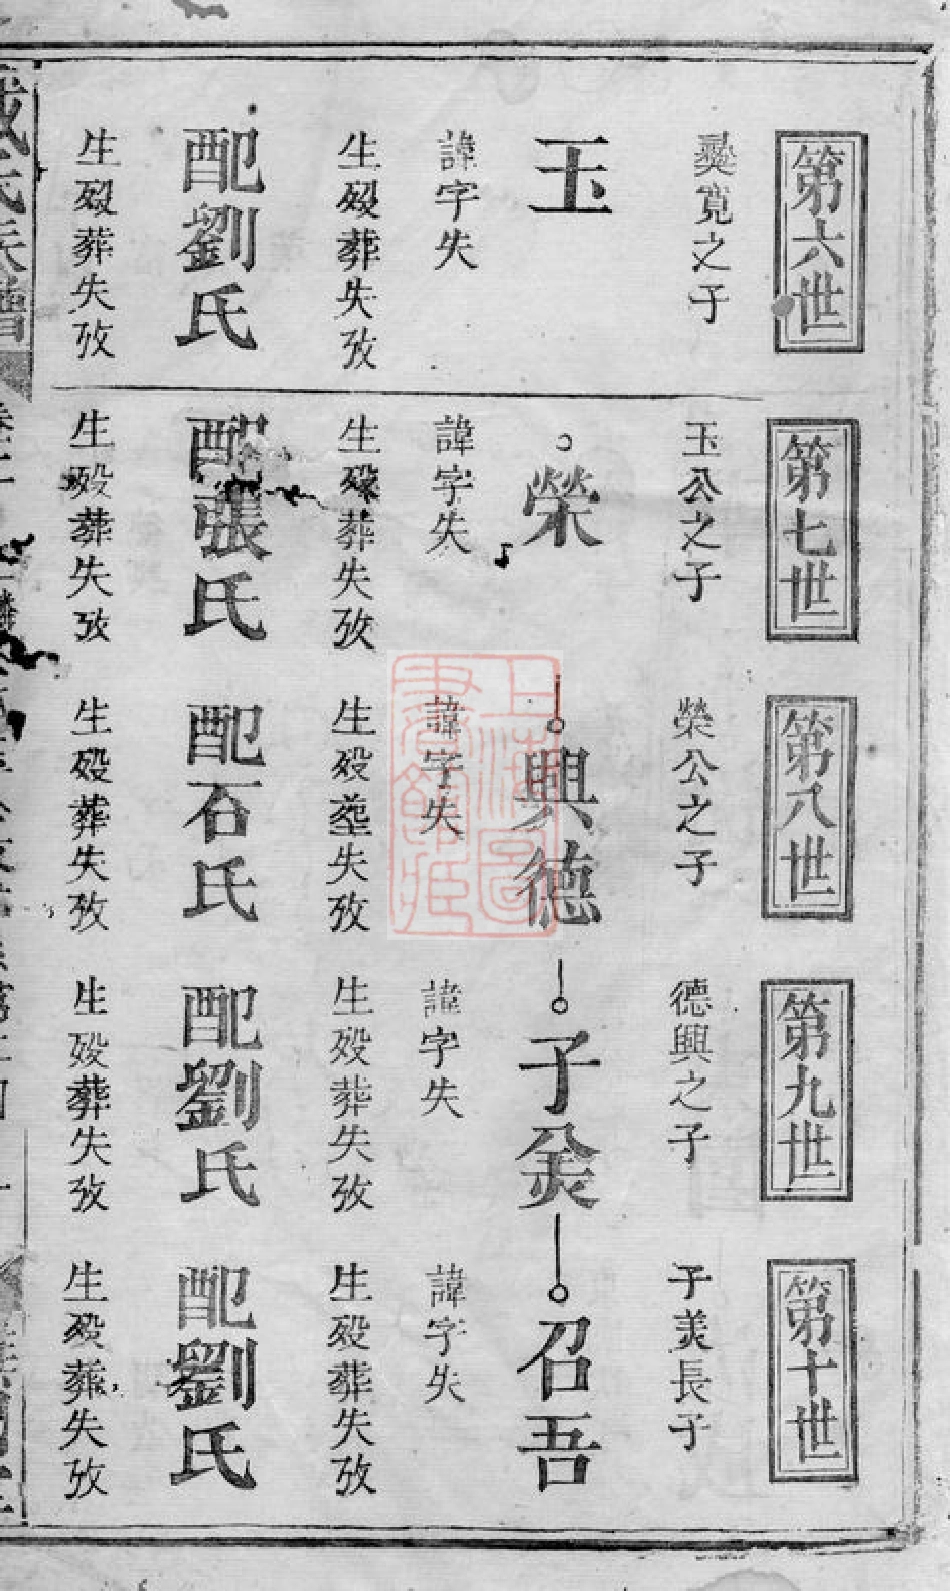 第六世
彛寛之子
玉
諱字失
生殁葬失攷
配劉氏
生殁葬失攷
第七世
玉公之子
榮
諱字失
生殁葬失攷
配張氏
生殁葬失攷
第八世
榮公之子
興德
諱字失
生殁塟失攷
配石氏
生殁葬失攷
第九世
德興之子
子美
諱字失
生殁葬失攷
配劉氏
生殁葬失攷
第十世
子美長子
召吾
諱字失
生殁葬失攷
配劉氏
生殁葬失攷
上海圖書館藏